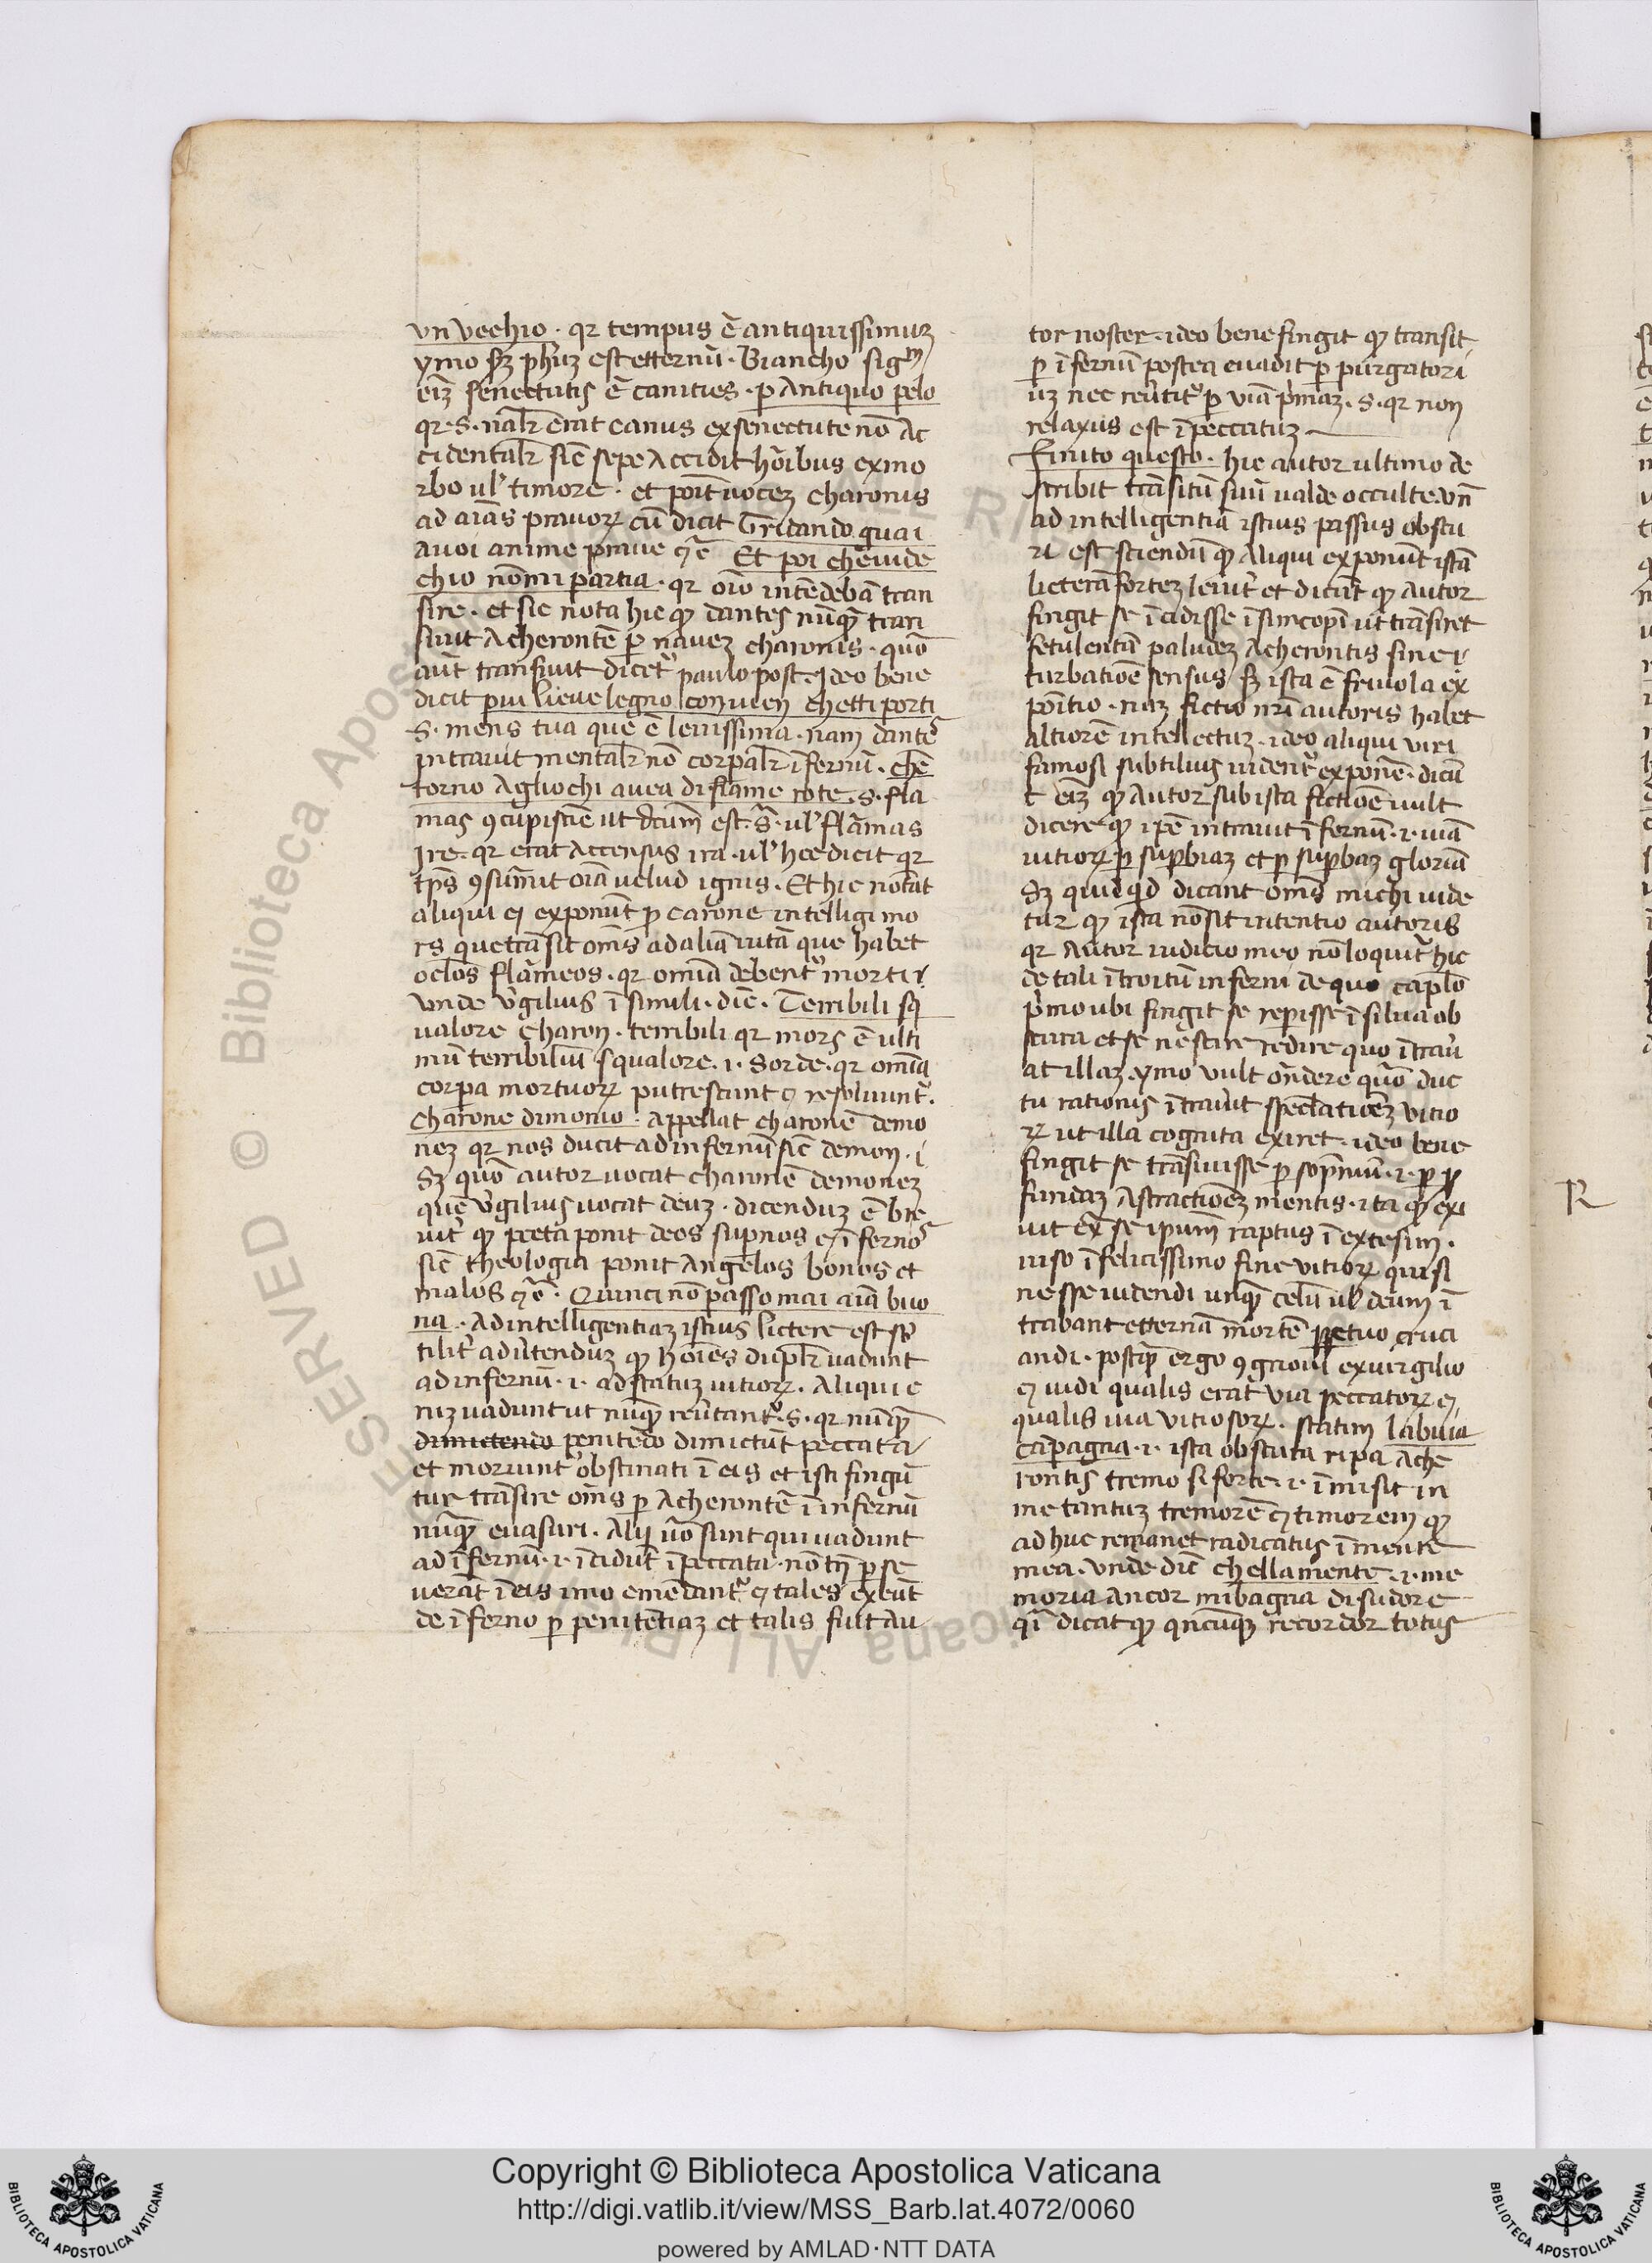 vn vechio · qr tempus ē antiquissimuz
ymo sꝫ ph̄uz est etternū · Biancho sigm
eiꝫ senectutis ē canities · p antiquo pelo
qr · s · nalr̄ erat canus ex senectute nō ac
cidentalr̄ sic̄ sepe accidit hōibus ex mo
rbo ul' timore · et poīt uocez charonis
ad aīas prauoꝝ cū dicit Gridando guai
a uoi anime praue ⁊ c̄ Et poi che uide
chio nōmi partia · qr oīo intēdebā tran
sire · et sic nota hic qꝫ dantes nūqꝫ tran
siuit acherontē p nauez charonis · quō
aūt transiuit dicet' paulo post · Ideo bene
dicit piu lieue legno conuien che tti porti
s · mens tua que ē leuissima · nam dantes
intrauit mentalr̄ nō corpalr̄ īfernū · che ̄n
torno agliochi auea di fiame rote · s · fla
mas ꝯcupiscīe ut dc̄um est · s̄ · ul' flāmas
Ire · qr erat accensus ira · ul' hec dicit qr
tp̄s ꝯsumit oīa uelud ignis · Et hic notant
aliqui ⁊ exponūt p carone intelligi mo
rs que trāsit om̄s ad aliā uitā que habet
oclos flāmeos · qr omīa debent' morti
vnde v'gilius ī simili · dic̄ · Terribili sq
ualore Charon · terribili qr mors ē ulti
mū terribiliū squalore · i · sorde · qr omīa
corpa mortuoꝝ putrescunt ⁊ resoluunt'.
Charone dimonio · appellat charonē demo
nez qr nos ducit ad infernū sic̄ demon · i
sꝫ quō autor uocat charonē demonez
quē v'gilius uocat deuz · dicenduz ē bre
uit' qꝫ poeta ponit deos supnos ⁊ īfernos
sic̄ theologia ponit angelos bonos et
malos ⁊ c̄ · Quinci nō passo mai aīa buo
na · Ad intelligentiaz istius lictere est sb
tilit' adu'tenduz qꝫ hoīes duplr̄ uadunt
ad infernū · i · ad statuz uitioꝝ · Aliqui e
niz uadunt ut nūqꝫ reu'tant' · s · qr nūnqꝫ
dimictendo penitēdo dimictūt peccata
et moriunt' obstinati ī eis et isti fingū
tur trāsire om̄s p acherontē ī infernū
nūqꝫ euasuri · Alij uō sunt qui uadunt
ad īfernū · i · īcidūt ī peccata · nō tn̄ p se
uerāt ī eis imo emēdant' ⁊ tales exeūt
de īferno p penitētiaz et talis fuit au
tor noster · ideo bene fingit qꝫ transit
p īfernū postea euadit p purgatori
uz nec reu'tit' p uiā p'maz · s · qr non
relaxus est ī peccatuz
Finito questo · hic autor ultimo de
scribit trāsitū suū ualde occulte · vn̄
ad intelligentiā istius passus obscu
ri est sciendū qꝫ aliqui exponūt istā
licterā fortez leuit' et dicūt qꝫ autor
fingit se īcidisse ī sincopī ut trāsiret
fetulentā paludez acherontis sine i
turbatiōe sensus sꝫ ista ē friuola ex
poītio · naz fictio nr̄i autoris habet
altiorē intellectuz · ideo aliqui viri
famosi subtilius uident' exponē · dicū
t eīz qꝫ autor sub ista fictiōe uult
dicere qꝫ ipē intrauit īfernū · i · uiā
uitioꝝ p sup̄biaz et p sup̄baz gloriā
Sꝫ quidqd dicant om̄s michi uide
tur qꝫ ista nō sit intentio autoris
qr autor iudicio meo nō loquit' hic
de tali ītroitū inferni de quo caplō
p'mo ubi fingit se reperisse ī silua ob
scura et se nescire redire quo ītrau'
at illaz · ymo vult on̄dere quō duc
tu rationis ītrauit speclatiōez vitio
ꝝ ut illa cognita exiret · ideo bene
fingit se trāsiuisse p sop̄nuū · i · p p̄
fundaz astractiōez mentis · ita qꝫ exi
uit ex̄ se ipum raptus ī extesim ·
uiso īfelicissimo fine vitioꝝ qui si
ne spe uidendi unqꝫ celū ul' deum ī
trabant etternā mortē ppetuo cruci
andi · postqꝫ ergo ꝯgnoui ex uirgilio
⁊ uidi qualis erat via peccatoꝝ ⁊
qualis uia vitiosoꝝ · statim la buia
cāpagna · i · ista obscura ripa ache
rontis tremo si forte · i · īmisit in
me tantuz tremorē ⁊ timorem qꝫ
ad huc remanet radicatus ī mente
mea · vnde dic̄ che lla mente · i · me
moria ancor mi bagna di sudore
q̄i dicat qꝫ qn̄cūqꝫ recordor totus
R
© Biblioteca Apostolica Vaticana ALL RIGHTS RESERVED
Copyright © Biblioteca Apostolica Vaticana
http://digi.vatlib.it/view/MSS_Barb.lat.4072/0060
powered by AMLAD·NTT DATA
BIBLIOTECA APOSTOLICA VATICANA
BIBLIOTECA APOSTOLICA VATICANA